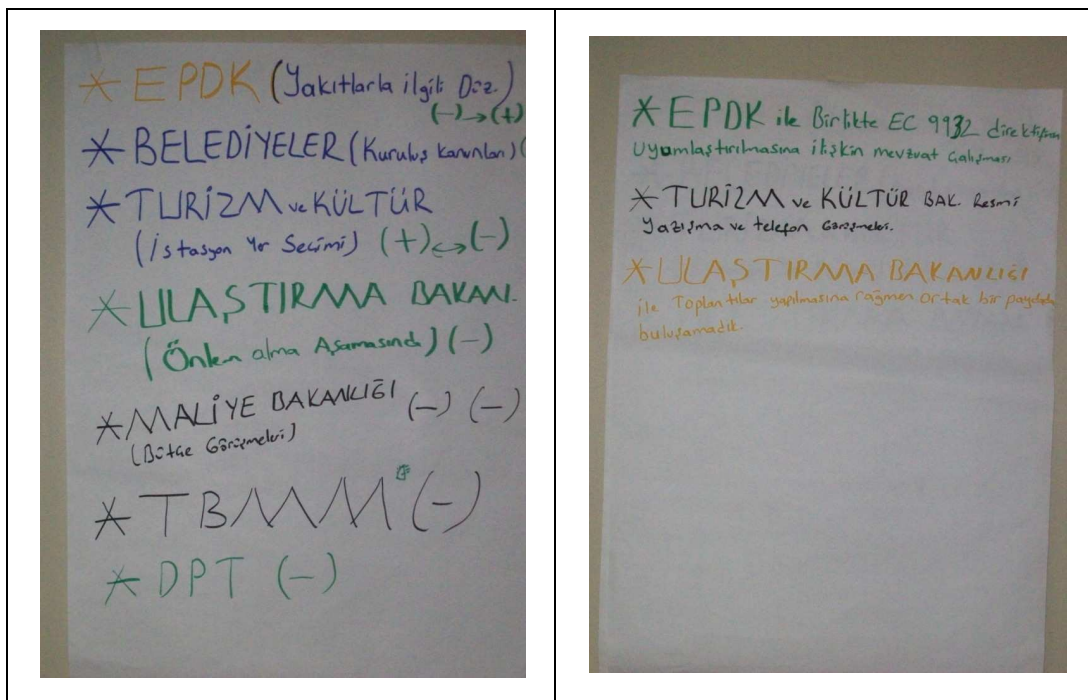 * EPDK (Yakıtlarla ilgili Düz.)
(-)→(+)
* BELEDİYELER (Kuruluş kanunları) (
* TURİZM ve KÜLTÜR
(İstasyon Yer Seçimi) (+)↔(-)
* ULAŞTIRMA BAKANL.
(Önlem alma Aşamasında) (-)
* MALİYE BAKANLIĞI (-) (-)
(Bütçe Görüşmeleri)
* TBMM (-)
* DPT (-)
* EPDK ile Birlikte EC 9932 direktifinin
Uyumlaştırılmasına ilişkin mevzuat çalışması
* TURİZM ve KÜLTÜR BAK. Resmi
Yazışma ve telefon Görüşmeleri.
* ULAŞTIRMA BAKANLIĞI
ile Toplantılar yapılmasına rağmen ortak bir paydada
buluşamadık.